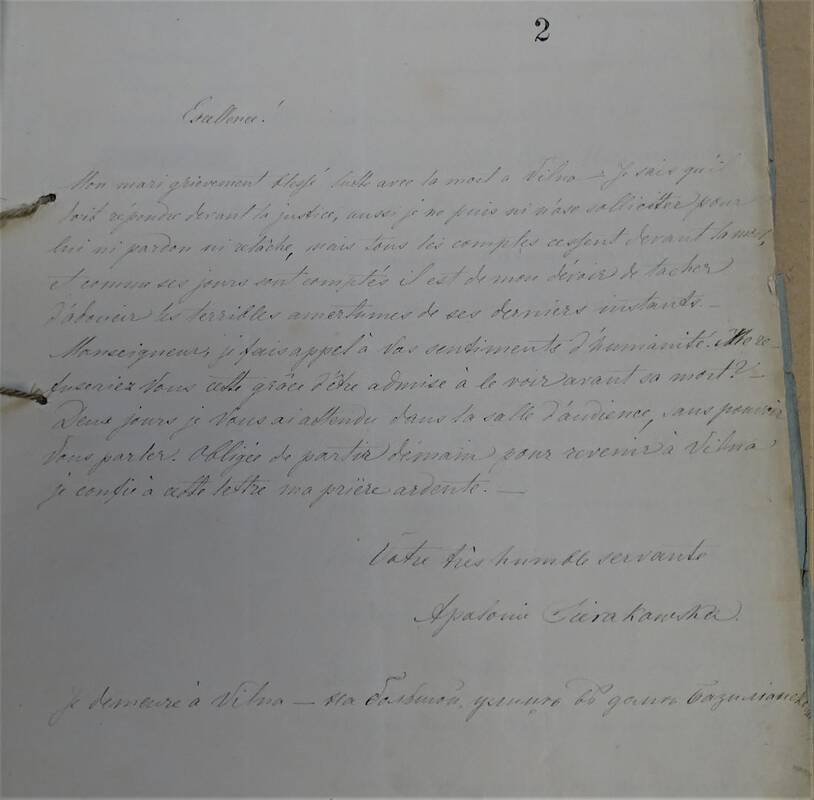 2
Excellence!
Mon mari grievement blessé lutte avec la mort a Vilna – Je sais qu'il
doit répondre devant la justice, aussi je ne puis ni n'ose solliciter pour
lui ni pardon ni relâche, mais tous les comptes cessent devant la mort,
et comme ses jours sont comptés il est de mon dévoir de tacher
d'adoucir les terribles amertumes de ses derniers instants. –
Monseigneur, je fais appel à vos sentiments d'humanité. Me re-
fuseriez Vous cette grâce d'être admise à le voir avant sa mort? –
Deux jours je Vous ai attendu dans la salle d'audience, sans pouvoir
Vous parler. Obligée de partir démain pour revenir à Vilna
je confie à cette lettre ma prière ardente. –
Votre très humble servante
Apalonie Sierakowska.
Je demeure à Vilna – на большой, улицѣ въ домѣ